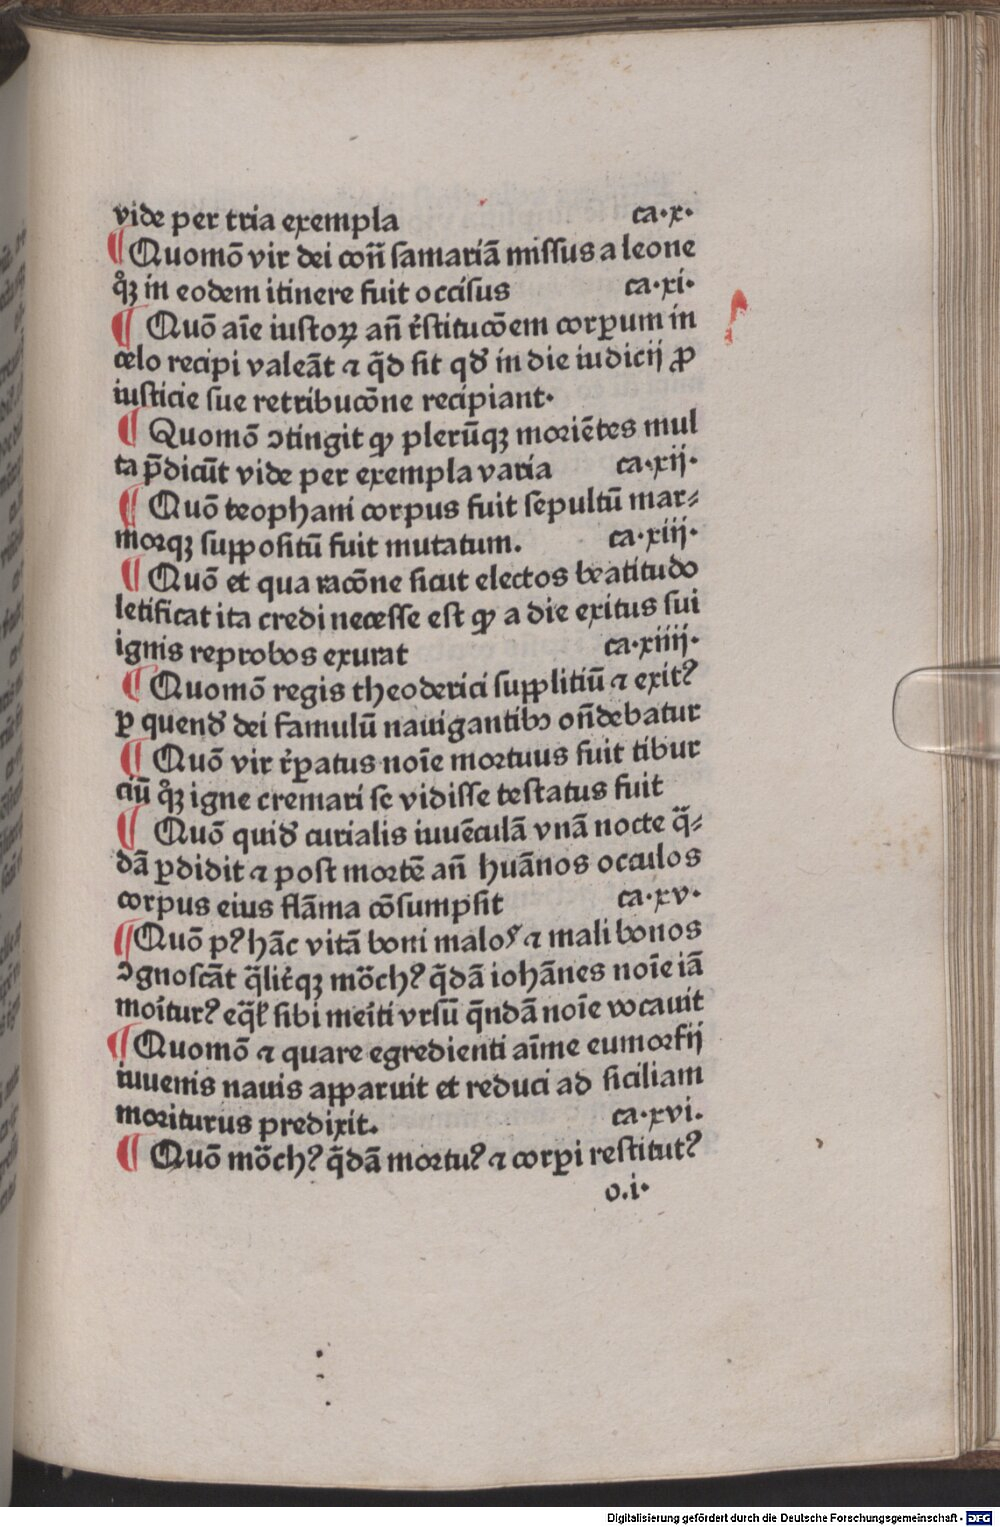 vide per tria exempla ca·x·
¶Quomō vir dei con̄ samariā missus a leone
qͦꝫ in eodem itinere fuit occisus ca·xi·
¶ Quō aīe iustoꝝ an̄ r̄stitucōem corꝑum in
celo recipi valeāt ⁊ q̄d sit qđ in die iudicij ꝓ
iusticie sue retribucōne recipiant·
¶ Quomō ↄtingit ꝙ plerūqꝫ moriētes mul
ta p̄dicūt vide per exempla varia ca·xij·
¶ Quō teophani corpus fuit sepultū mar⸗
morqꝫ suppositū fuit mutatum. ca·xiij·
¶ Quō et qua racōne sicut electos beatitudo
letificat ita credi necesse est ꝙ a die exitus sui
ignis reprobos exurat ca·xiiij·
¶ Quomō regis theoderici supplitiū ⁊ exitꝰ
ꝑ quenđ dei famulū nauigantibꝫ on̄debatur
¶ Quō vir r̄ꝑatus noīe mortuus fuit tibur
ciū qͦꝫ igne cremari se vidisse testatus fuit
¶ Quō quiđ curialis iuuēculā vnā nocte q̄⸗
dā ꝑdidit ⁊ post mortē an̄ huānos occulos
corpus eius flāma cōsumpsit ca·xv·
¶Quō pꝰ hāc vitā boni maloꝰ ⁊ mali bonos
ↄgnoscāt q̄lit̄qꝫ mōchꝰ q̄dā iohānes noīe iā
moīturꝰ eq̄ƚ sibi meīti vrsū q̄ndā noīe vocauit
¶Quomō ⁊ quare egredienti aīme eumorfij
iuuenis nauis apparuit et reduci ad siciliam
moriturus predixit. ca·xvi.
¶ Quō mōchꝰ q̄dā mortuꝰ ⁊ corꝑi restitutꝰ
o.i·
Digitalisierung gefördert durch die Deutsche Forschungsgemeinschaft - DFG